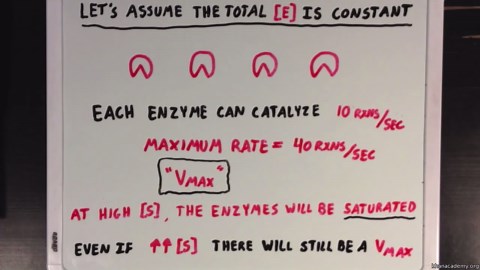 LET'S ASSUME THE TOTAL [E] IS CONSTANT
EACH ENZYME CAN CATALYZE 10 RXNS/SEC
MAXIMUM RATE = 40 RXNS/SEC
"VMAX"
AT HIGH [S], THE ENZYMES WILL BE SATURATED
EVEN IF ↑↑[S] THERE WILL STILL BE A VMAX
khanacademy.org